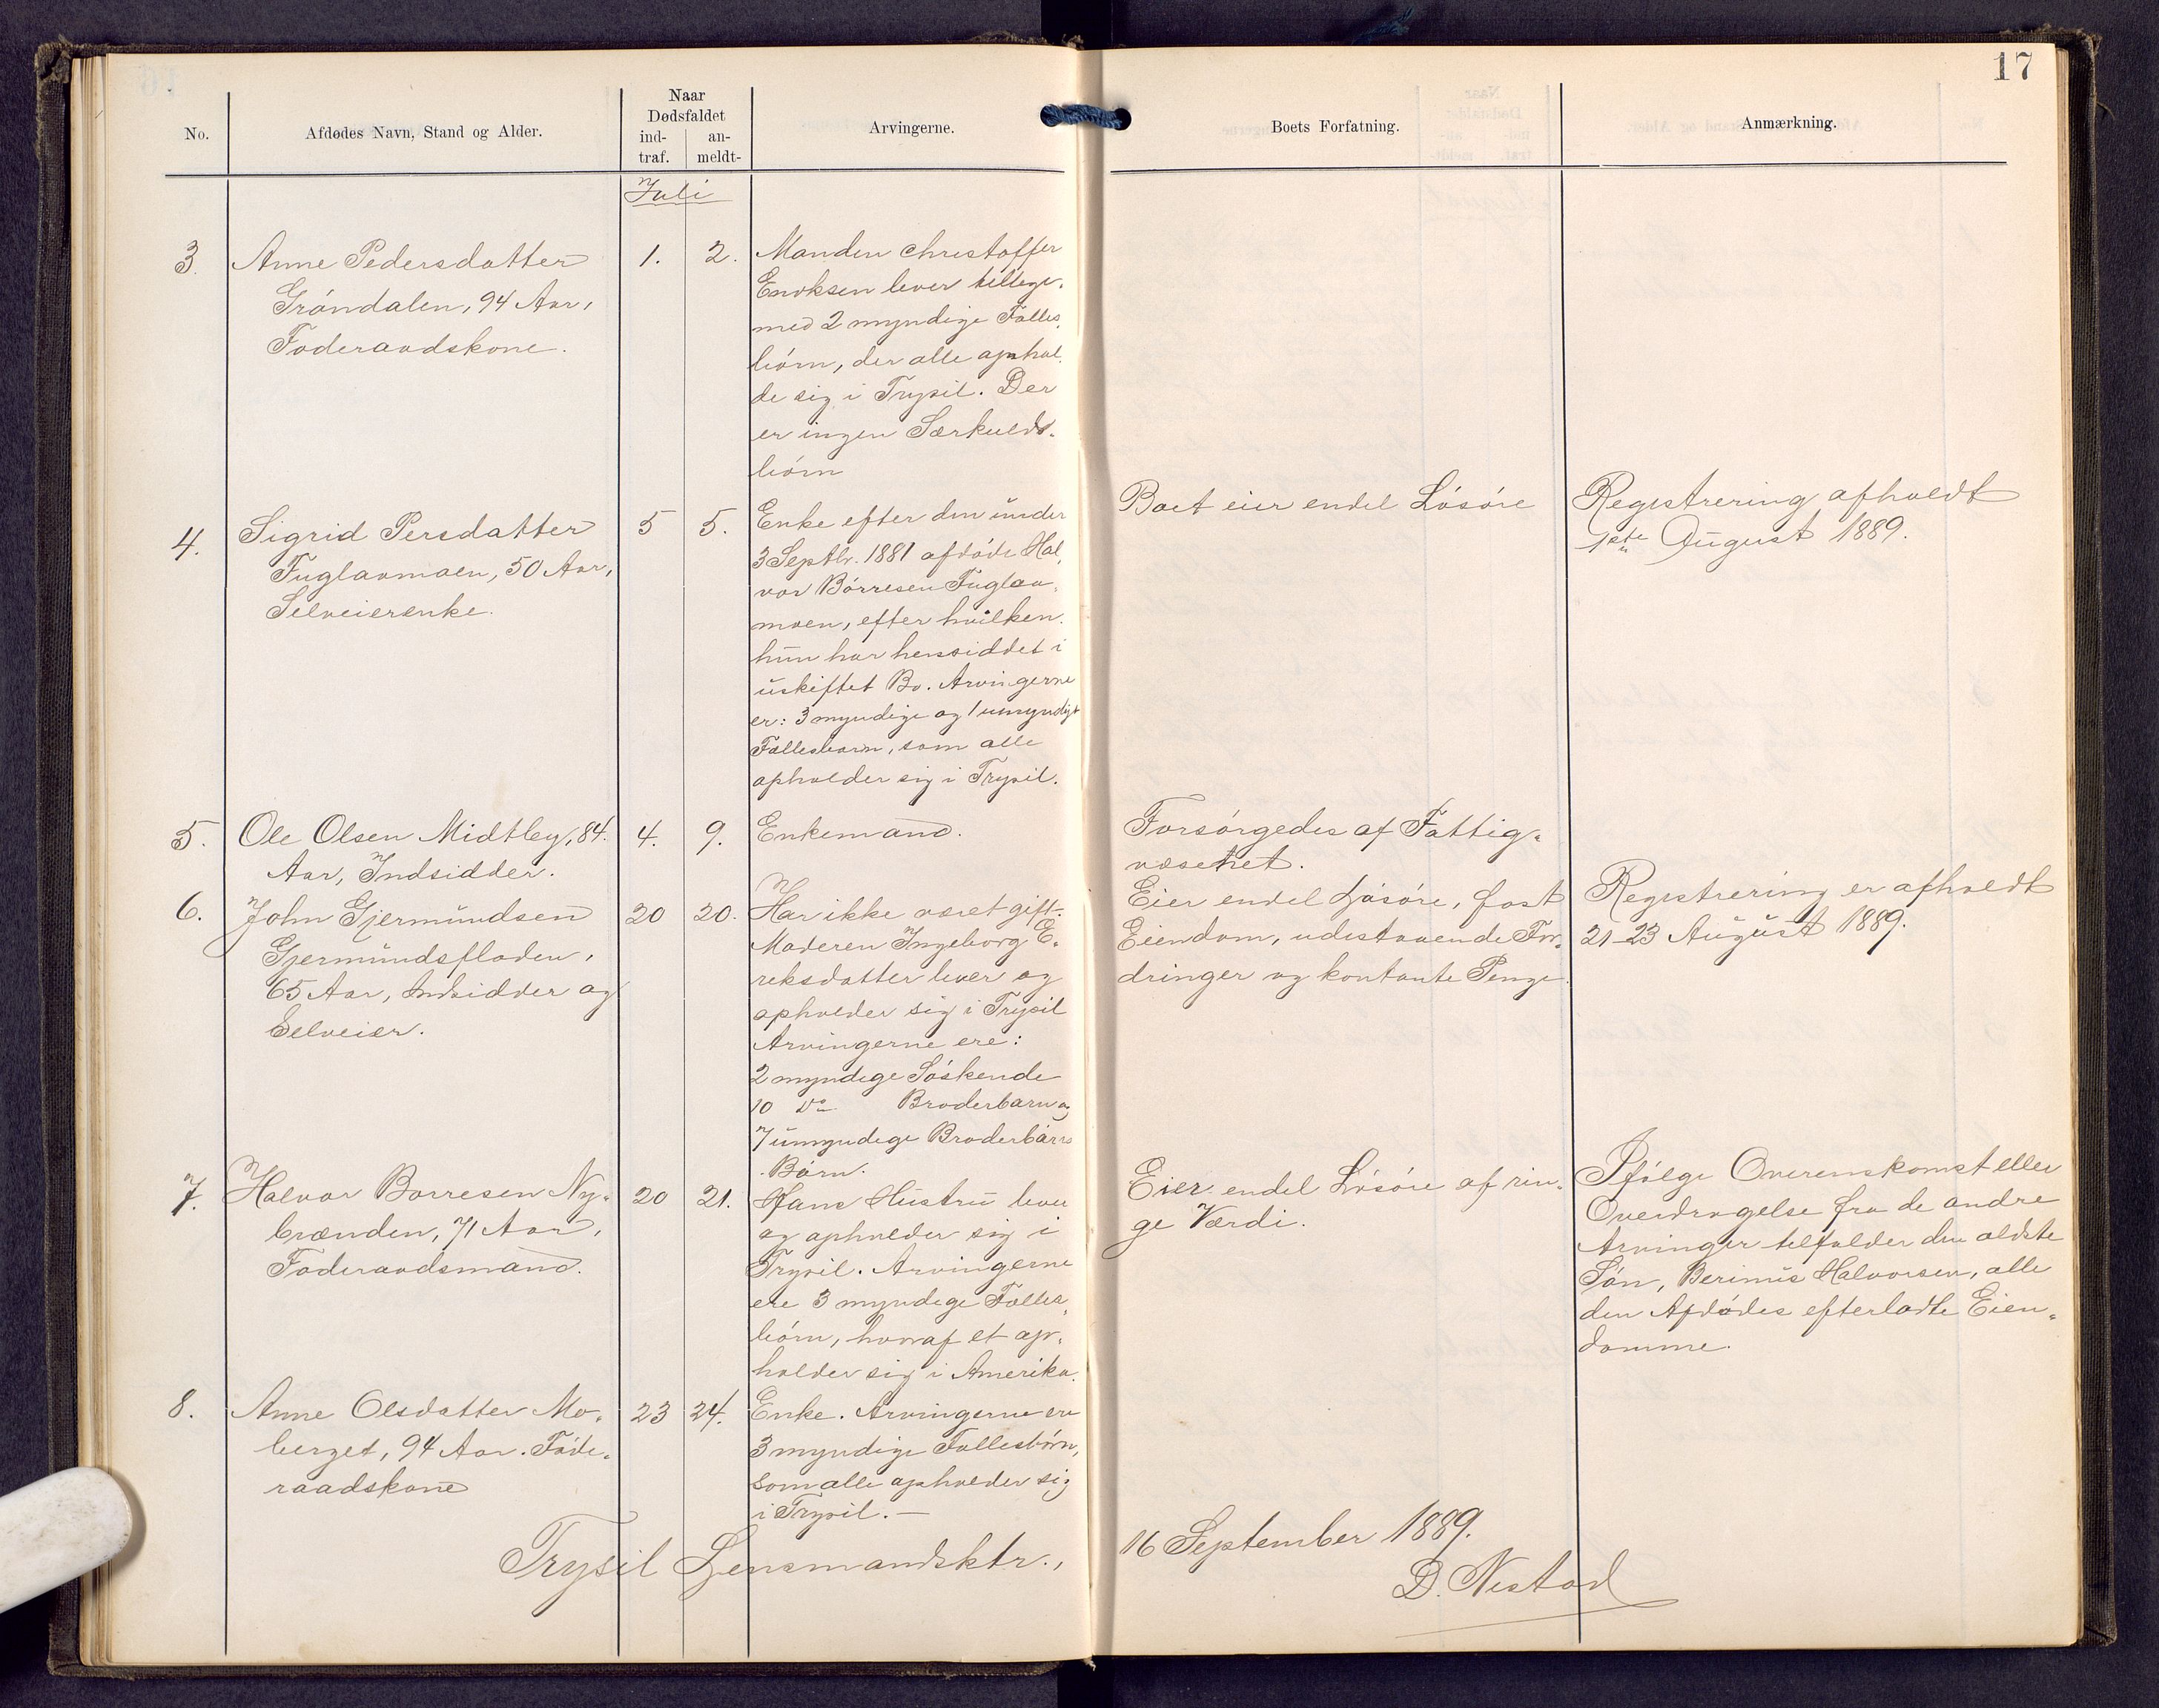 17
No.
Afdødes Navn, Stand og Alder.
Naar
Dødsfaldet
ind-
traf.
an-
meldt-
Arvingerne.
Boets Forfatning.
Anmærkning.
Juli
3.
Anne Pedersdatter
Gróndalen, 94 Aar,
Foderaadskone.
1.
2.
Manden Christoffer
Enoksen lever tillige-
med 2 myndige Fælles-
börn, der alle ophol-
de sig i Trysil. Der
er ingen Særkulds-
börn
4.
Sigrid Persdatter
Fuglaamoen, 50 Aar,
Selveierenke.
5
5.
Enke efter den under
3 Septbr. 1881 afdöde Hal-
vor Börresen Fuglaa-
moen, efter hvilken
hun har hensiddet i
uskiftet Bo. Arvingerne
er: 3 myndige og 1 umyndigt
Fællesbarn, som alle
opholder sig i Trysil.
Boet eier endel Lösöre
Registrering afholdt
1ste August 1889.
5.
Ole Olsen Midtby, 84.
Aar, Indsidder.
4.
9.
Enkemand.
Forsörgedes af Fattig-
væsenet.
6.
John Gjermundsen
Gjermundsfloden,
65 Aar, Indsidder og
Selveier.
20
20.
Har ikke været gift.
Moderen Ingeborg E-
reksdatter lever og
opholder sig i Trysil
Arvingerne ere:
2 myndige Söskende
10 do Broderbarn og
7 umyndige Broderbörns
Börn.
Eier endel Lösöre, fast
Eiendom, udestaaende For-
dringer og kontante Penge.
Registrering er afholdt
21-23 August 1889.
7.
Halvor Borresen Ny-
brænden, 71 Aar,
Foderaadsmand.
20
21.
Hans Hustru lever
og opholder sig i
Trysil. Arvingerne
ere 3 myndige Fælles-
börn, hvoraf et op-
holder sig i Amerika.
Eier endel Lösöre af rin-
ge Værdi.
Ifölge Overenskomst eller
Overdragelse fra de andre
Arvinger tilfalder den ældste
Sön, Berinus Halvorsen, alle
den Afdödes efterladte Eien-
domme.
8.
Anne Olsdatter Mo-
berget, 94 Aar. Föde-
raadskone
23
24.
Enke. Arvingerne ere
3 myndige Fællesbörn,
som alle opholder sig
i Trysil.—
Trysil Lensmandsktr.,
16 September 1889.
D. Nestad